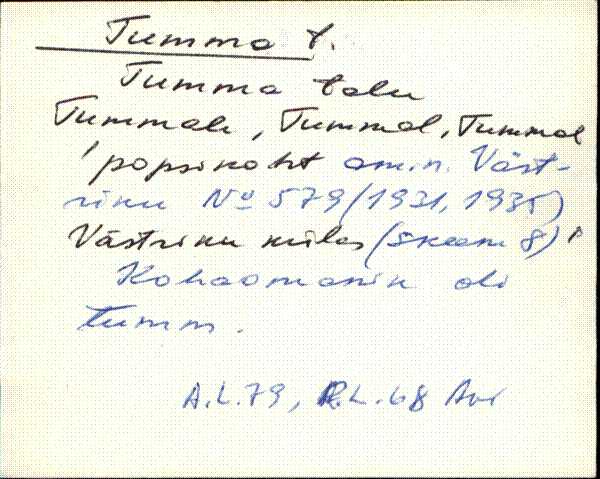 Tumma t.
Tumma talu
Tummale, Tummal, Tummal
'popsikoht am.n. Väst-
riku № 579 (1931, 1935)
Västriku külas (skeem 8)'
Kohaomanik oli
tumm.
A.L.79, R.L.68 Avi